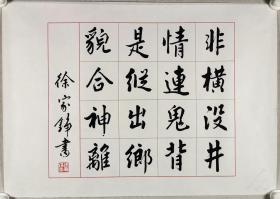 貌是情非
合縱連橫
神出鬼沒
離鄉背井
徐家書